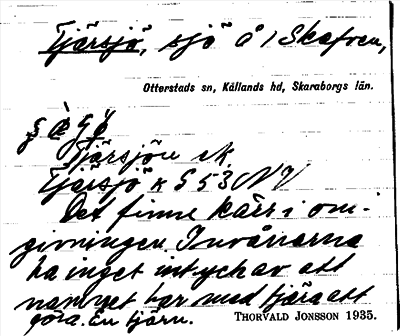 Tjärsjö, sjö å 1 Skafven,
Otterstads sn, Kållands hd, Skaraborgs län.
Tjärsjön ek.
Tjärsjö k S 53 NV
Det finns kärr i om-
givningen. Invånarna
ha inget intryck av att
namnet har med tjära att
göra. En tjärn.
THORVALD JONSSON 1935.